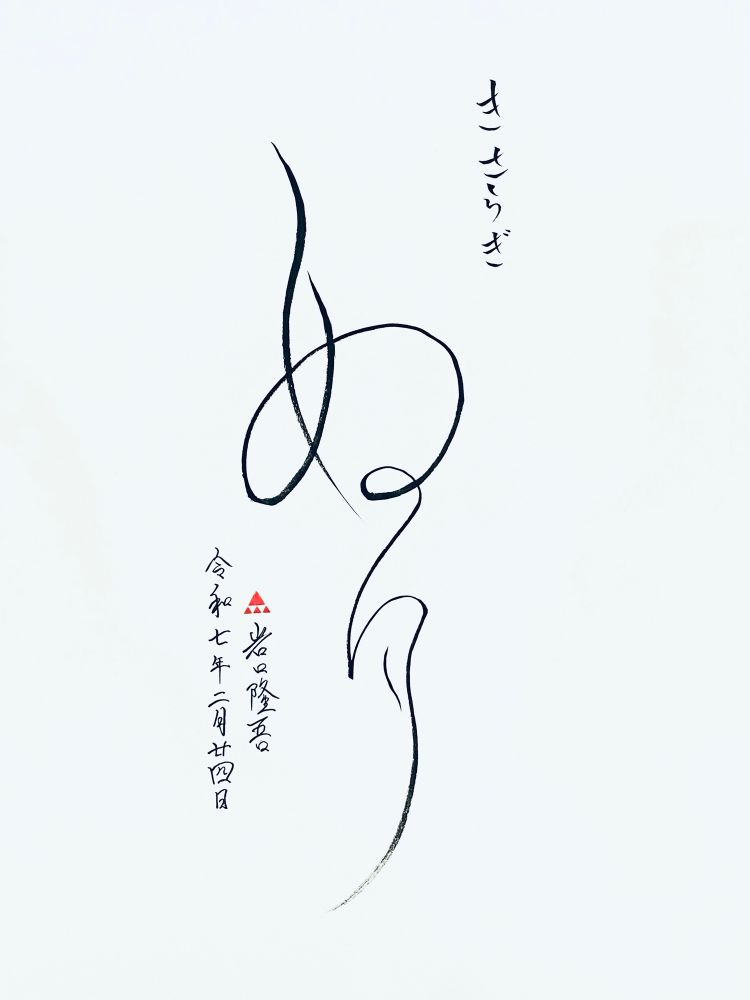 きさらぎ
岩口隆吾
令和七年二月廿四日